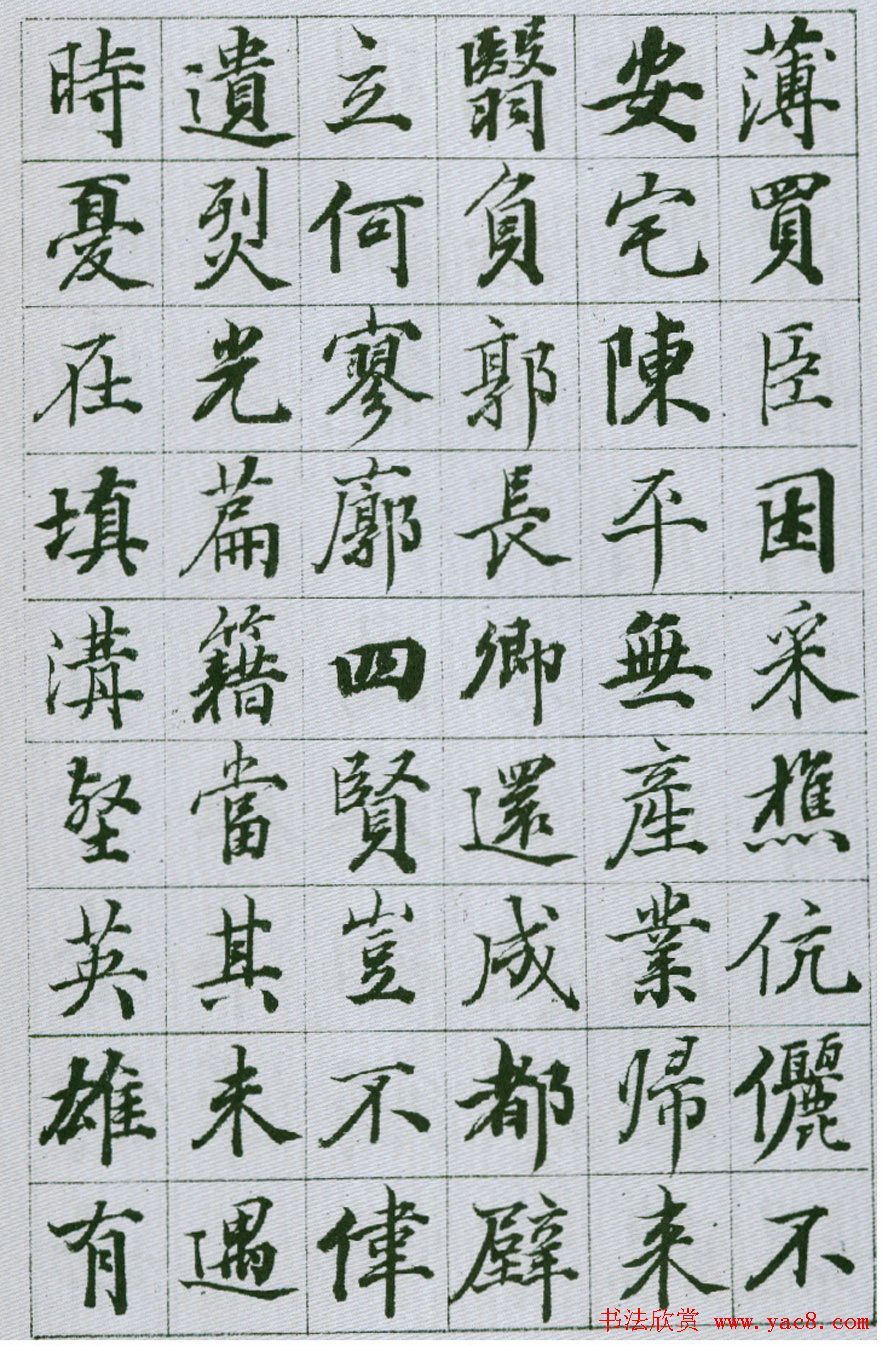 薄買臣困采樵伉儷不
安宅陳平無產業歸来
翳負郭長卿還成都壁
立何寥廓四賢豈不偉
遺烈光篇籍當其未遇
時憂在填溝壑英雄有
书法欣赏 www.yac8.com